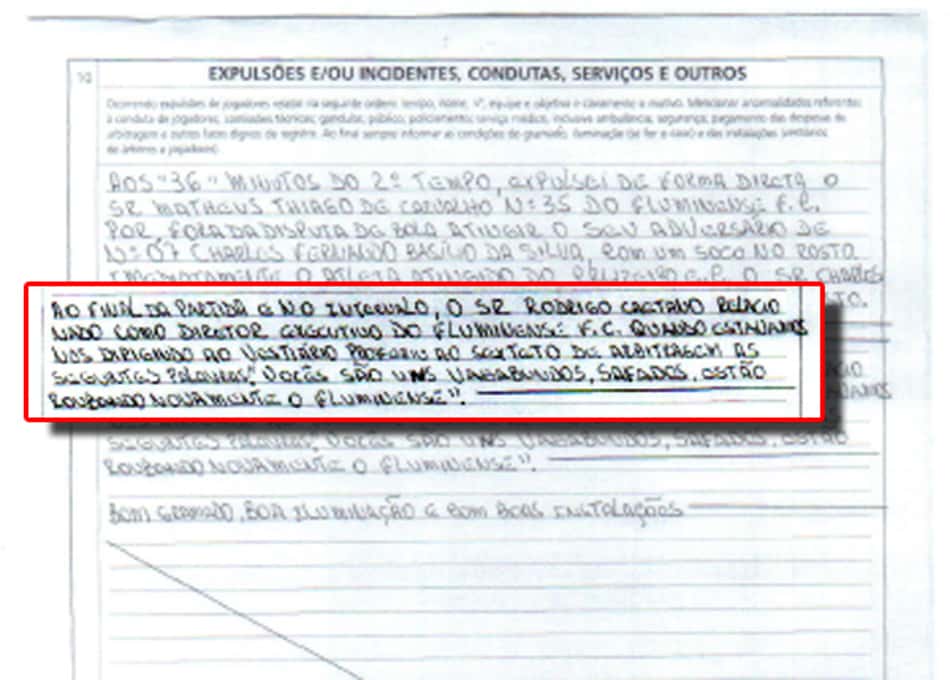 10
EXPULSÕES E/OU INCIDENTES, CONDUTAS, SERVIÇOS E OUTROS
Ocorrendo expulsões de jogadores relatar na seguinte ordem: tempo, nome, nº, equipe e objetiva e claramente o motivo. Mencionar anormalidades referentes
à conduta de jogadores, comissões técnicas, gandulas, público, policiamento, serviço médico, inclusive ambulância, segurança, pagamento das despesas de
arbitragem e outros fatos dignos de registro. Ao final sempre informar as condições do gramado, iluminação (se for o caso) e das instalações (vestiários
de árbitros e jogadores).
AOS "36" MINUTOS DO 2º TEMPO, EXPULSEI DE FORMA DIRETA O
SR MATHEUS THIAGO DE CARVALHO Nº 35 DO FLUMINENSE F.C.
POR FORA DA DISPUTA DE BOLA ATINGIR O SEU ADVERSÁRIO DE
Nº 07 CHARLES FERNANDO BASÍLIO DA SILVA, COM UM SOCO NO ROSTO
IMEDIATAMENTE O ATLETA ATINGIDO DO CRUZEIRO E.C. O SR CHARLES
AO FINAL DA PARTIDA E NO INTERVALO, O SR RODRIGO CAETANO RELACIO
NADO COMO DIRETOR EXECUTIVO DO FLUMINENSE F.C. QUANDO ESTAVAMOS
NOS DIRIGINDO AO VESTIÁRIO PROFERIU AO SEXTETO DE ARBITRAGEM AS
SEGUINTES PALAVRAS: "VOCÊS SÃO UNS VAGABUNDOS, SAFADOS, ESTÃO
ROUBANDO NOVAMENTE O FLUMINENSE".
SEGUINTES PALAVRAS: "VOCÊS SÃO UNS VAGABUNDOS, SAFADOS, ESTÃO
ROUBANDO NOVAMENTE O FLUMINENSE".
BOM GRAMADO, BOA ILUMINAÇÃO E BOM BOAS INSTALAÇÕES